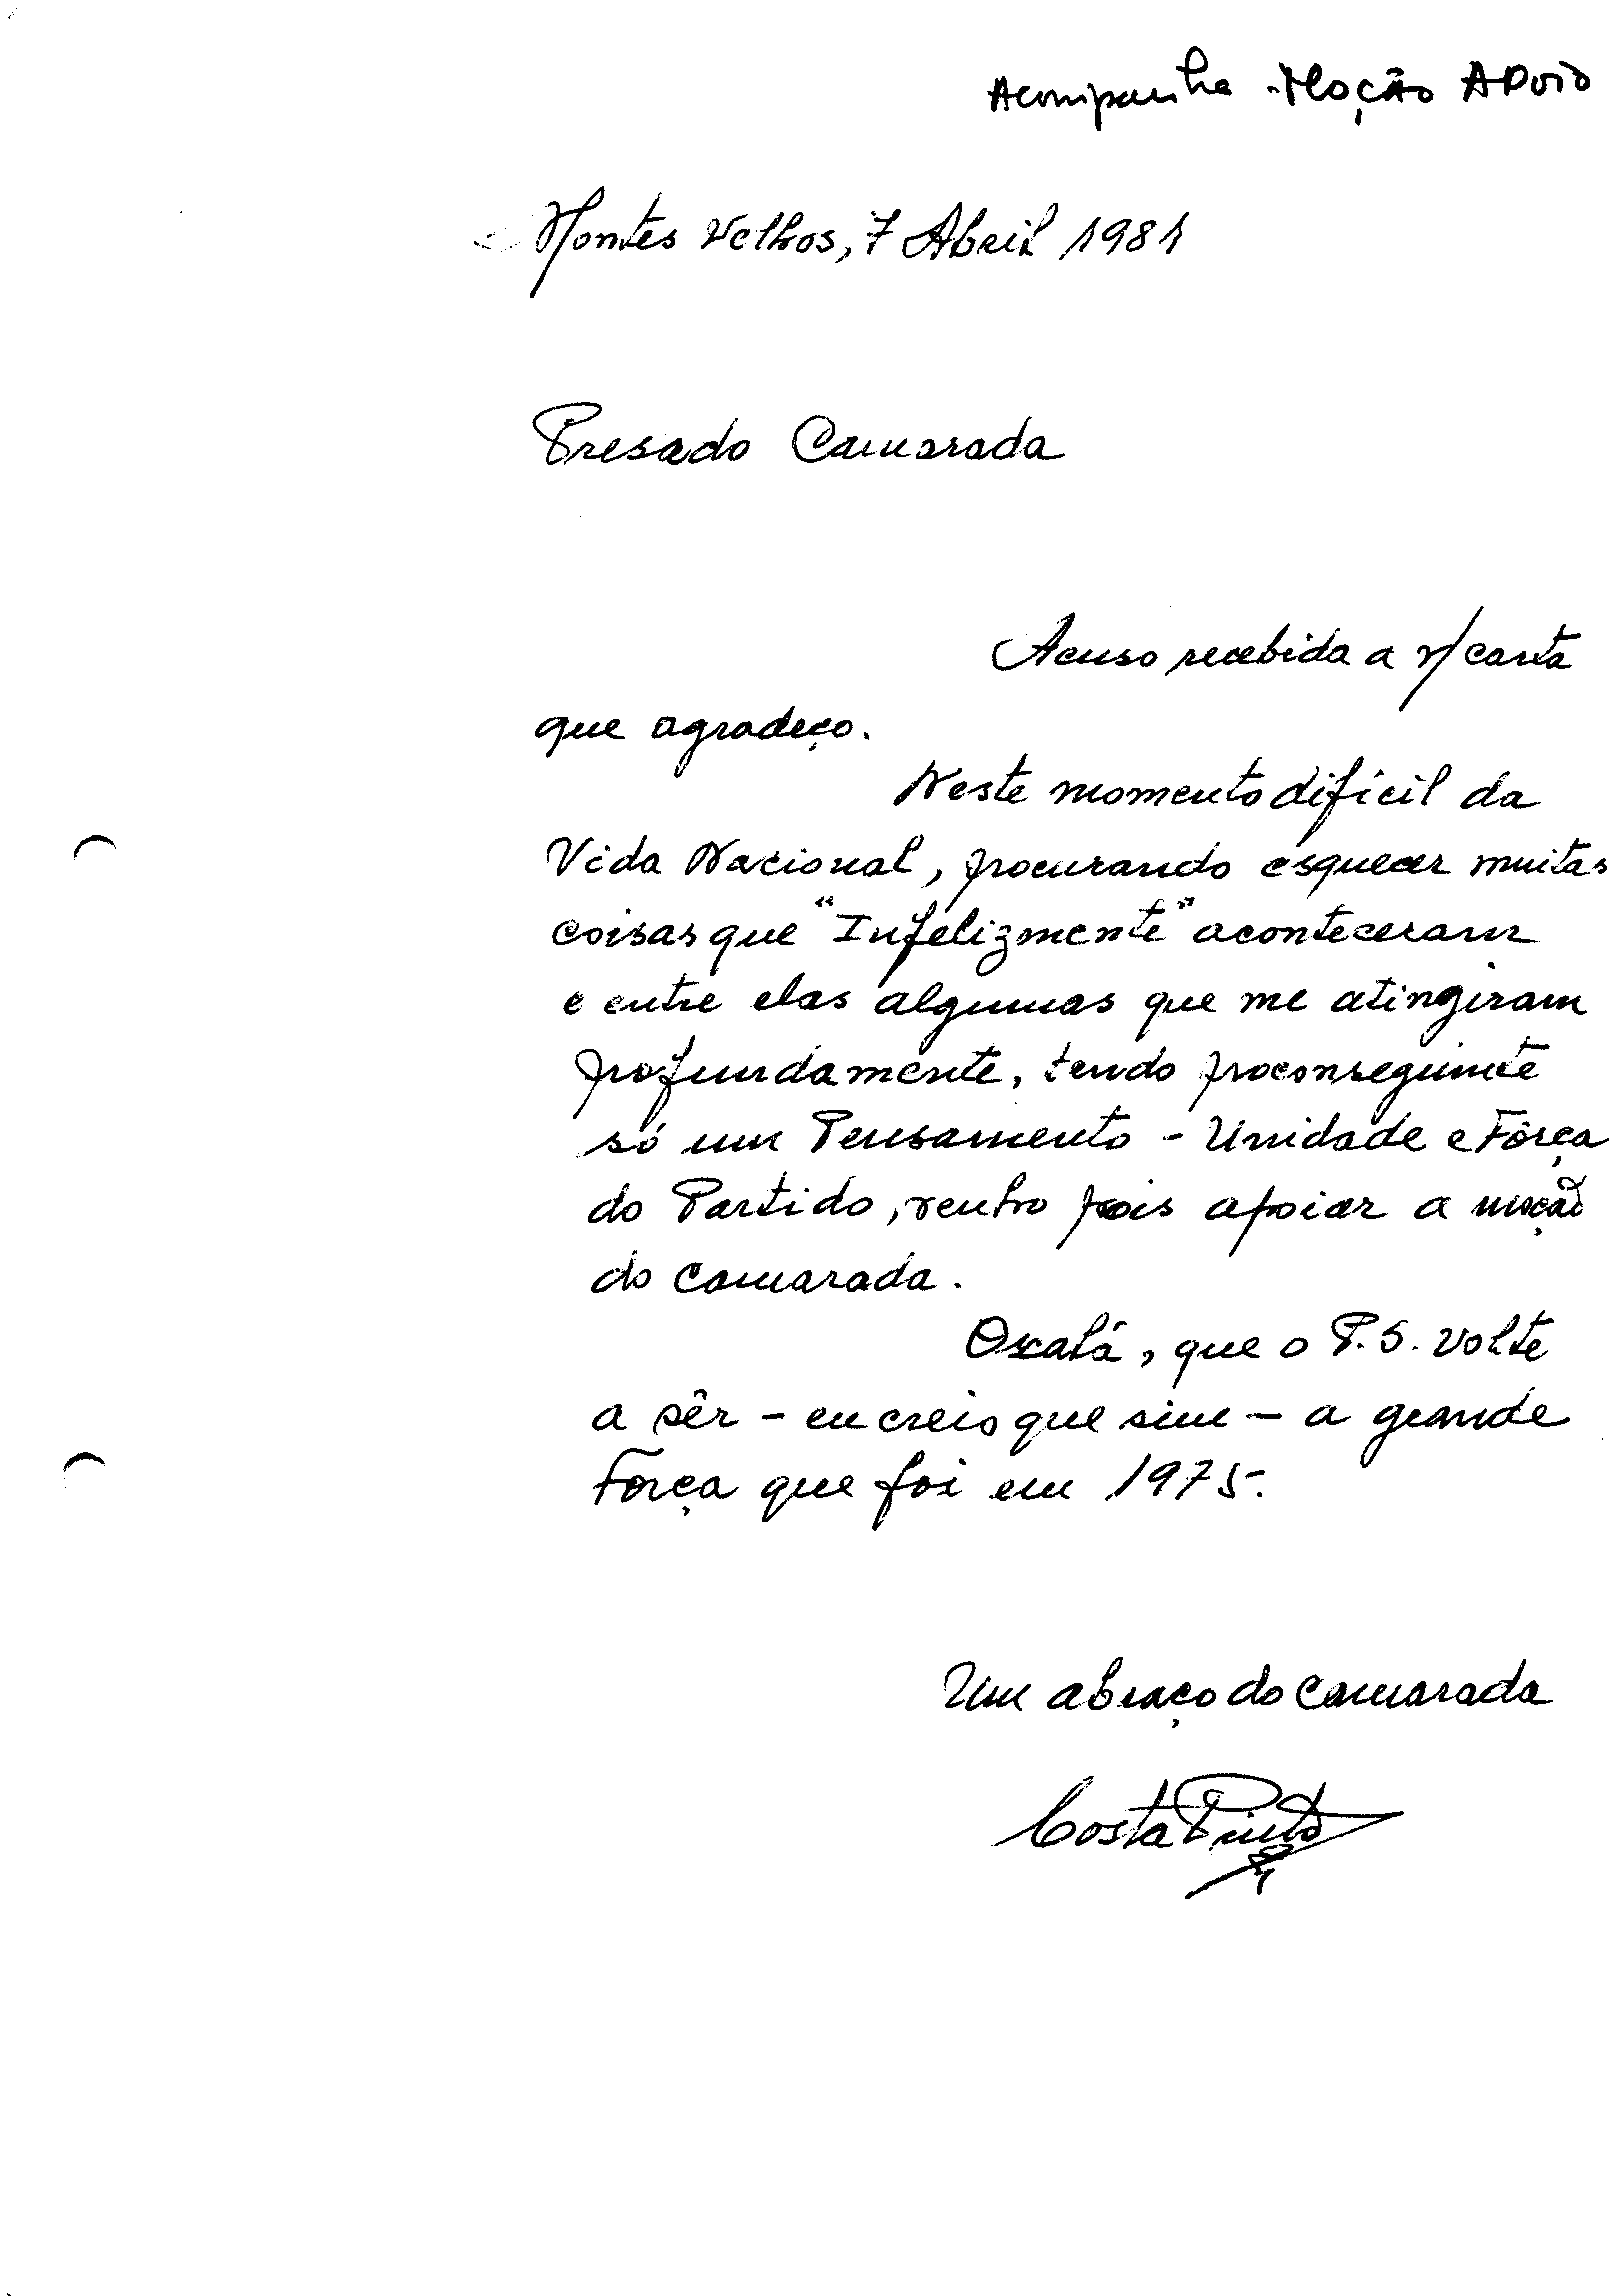 Acompanha Moção Apoio
Montes Velhos, 7 Abril 1981
Presado Camarada
Acuso recebida a v/ carta
que agradeço.
Neste momento difícil da
Vida Nacional, procurando esquecer muitas
coisas que "Infelizmente" aconteceram
e entre elas algumas que me atingiram
profundamente, tendo proconseguinte
só um Pensamento - Unidade e Fôrça
do Partido, venho pois apoiar a moção
do Camarada.
Oxalá, que o P.S. volte
a sêr - eu creio que sim - a grande
Força que foi em 1975.
Um abraço do Camarada
Costa Pinto